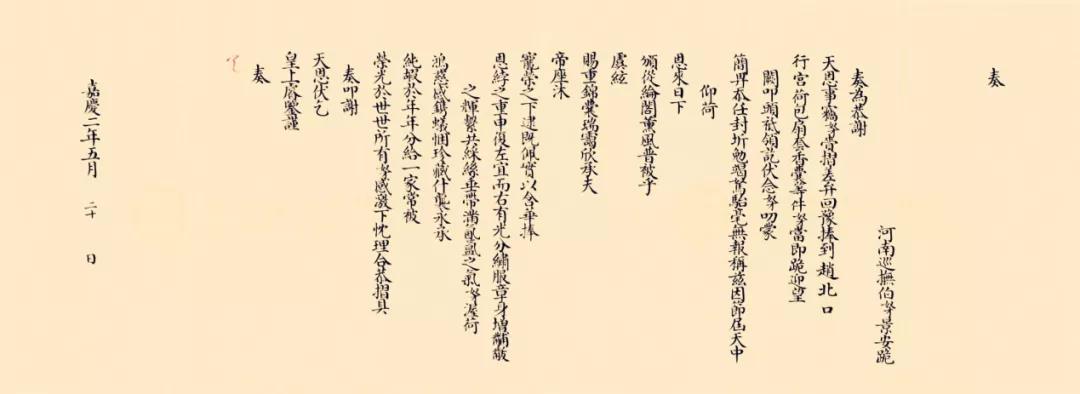 奏
河南巡撫伯奴景安跪
奏為恭謝
天恩事竊奴齎摺差弁回豫捧到趙北口
行宮荷包扇套香囊等件奴當即跪迎望
闕叩頭祗領訖伏念奴叨蒙
簡畀忝任封圻勉竭駑駘毫無報稱茲因節屆天中
仰荷
恩來日下
頒從綸閣薰風普被乎
虞絃
賜重錦囊瑞靄欣承夫
帝座沐
寵榮之下逮既佩實以含華捧
恩綍之重申復左宜而右有光分繡服章身增黼黻
之輝繫共綵絲垂帶滿氤氳之氣奴渥荷
鴻慈感鐫蟻悃珍藏什襲永承
純嘏於年年分給一家常被
榮光於世世所有奴感激下忱理合恭摺具
奏叩謝
天恩伏乞
皇上睿鑒謹
奏
嘉慶二年五月 二十 日